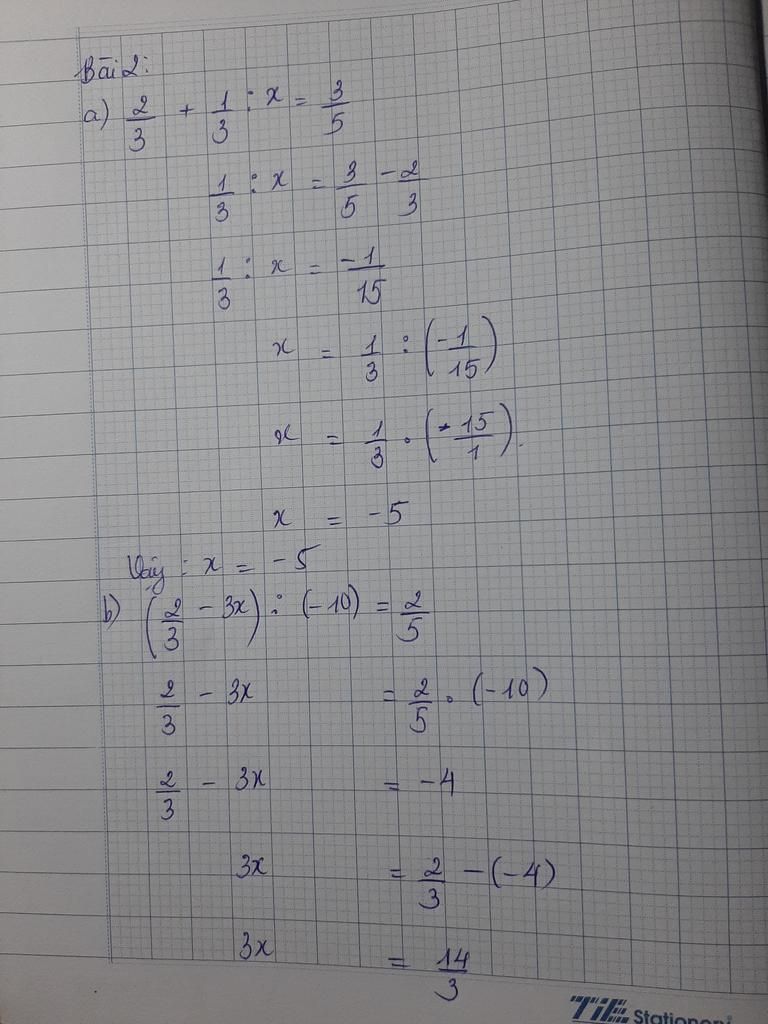 Bài 2:
a) 2/3 + 1/3 : x = 3/5
1/3 : x = 3/5 - 2/3
1/3 : x = -1/15
x = 1/3 : (-1/15)
x = 1/3 . (-15/1).
x = -5
Vậy : x = -5
b) (2/3 - 3x) : (-10) = 2/5
2/3 - 3x = 2/5 . (-10)
2/3 - 3x = -4
3x = 2/3 - (-4)
3x = 14/3
TiE Stationery